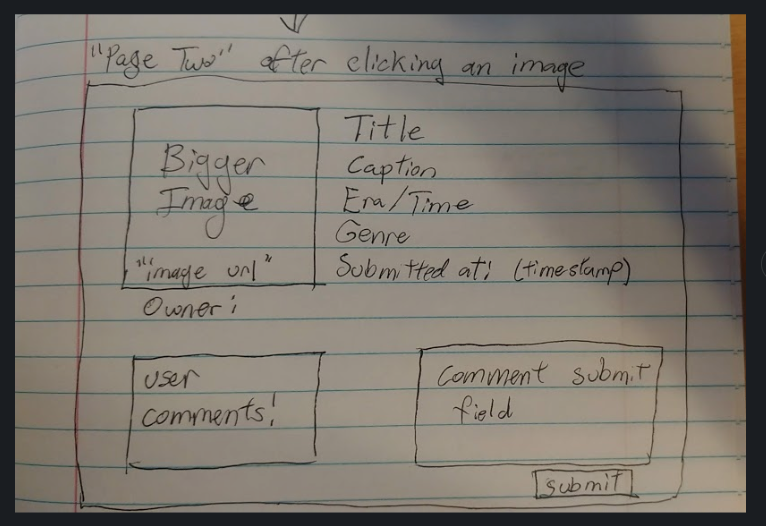 "Page Two" after clicking an image
Bigger
Image
"image url"
Owner:
Title
Caption
Era/Time
Genre
Submitted at: (timestamp)
user
comments!
comment submit
field
submit